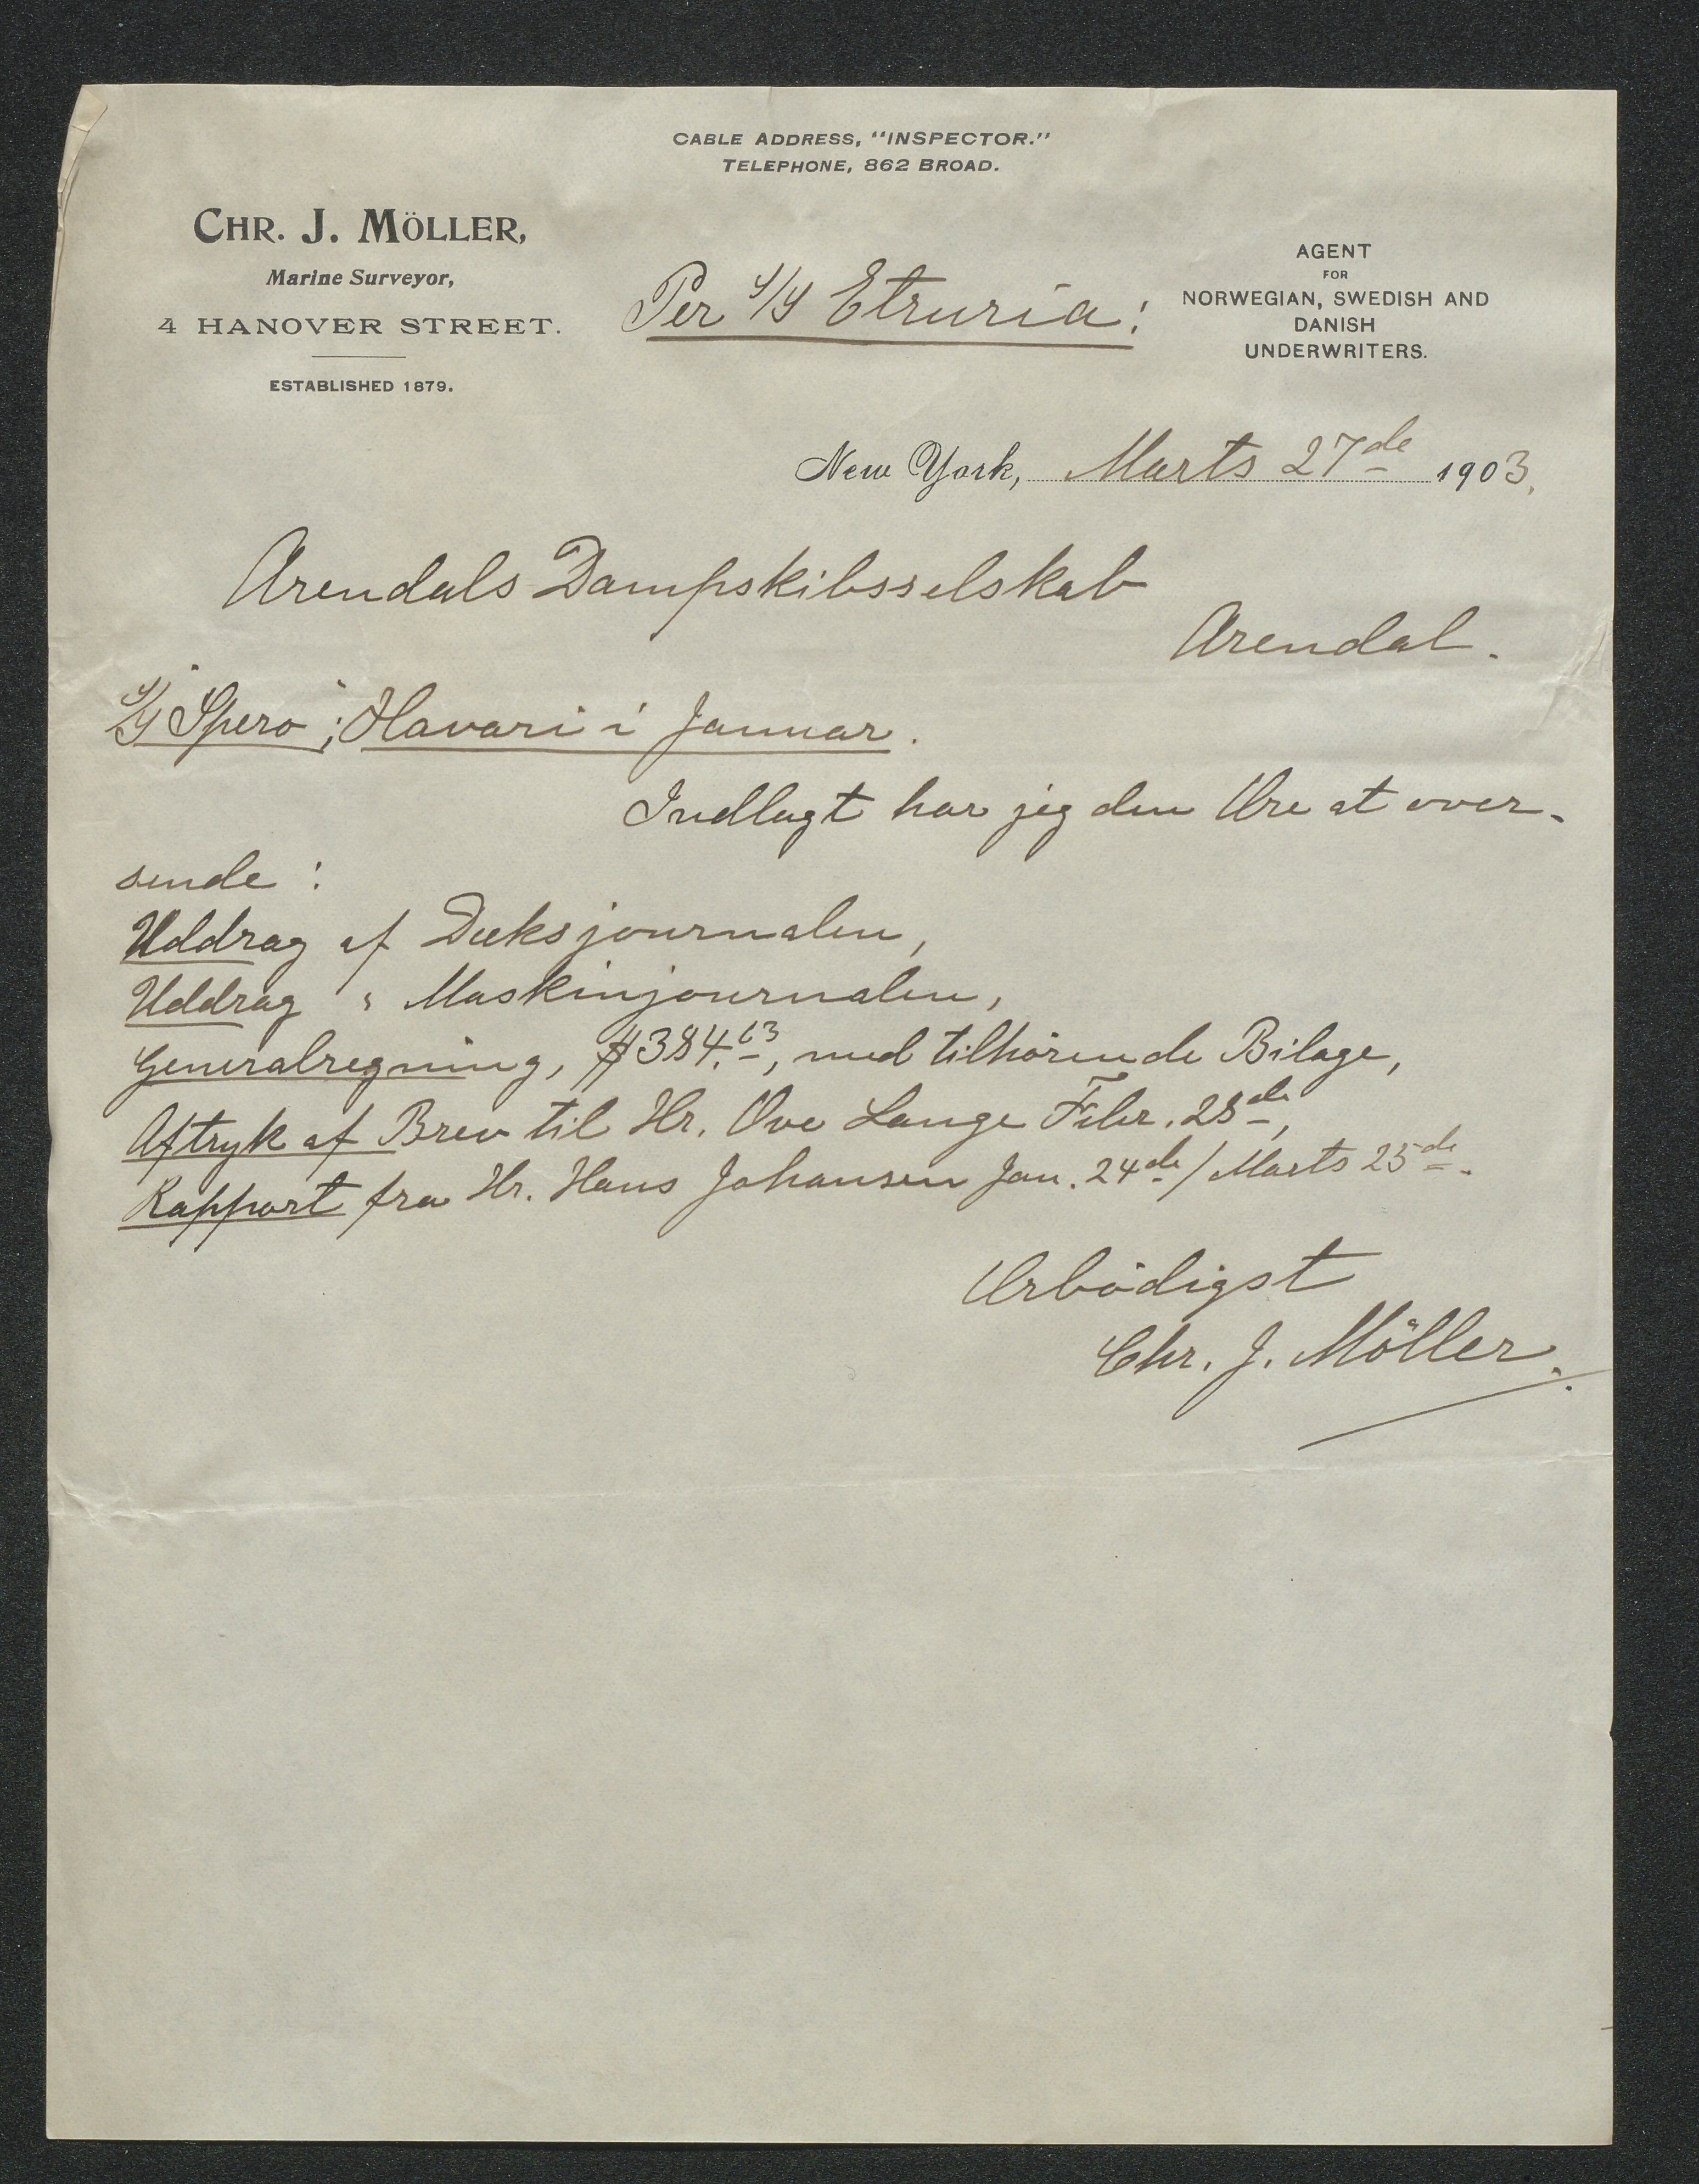 CABLE ADDRESS, "INSPECTOR."
TELEPHONE, 862 BROAD.
CHR. J. MÖLLER,
Marine Surveyor,
4 HANOVER STREET.
ESTABLISHED 1879.
Per S/S Etruria:
AGENT
FOR
NORWEGIAN, SWEDISH AND
DANISH
UNDERWRITERS.
New York, Marts 27de 1903.
Arendals Dampskibsselskab
Arendal.
S/S "Spero"; Havari i Januar.
Indlagt har jeg den Ære at over-
sende:
Uddrag af Dæksjournalen,
Uddrag " Maskinjournalen,
Generalregning, $384.63, med tilhörende Bilage,
Aftryk af Brev til Hr. Ove Lange Febr. 28de,
Rapport fra Hr. Hans Johansen Jan. 24de/Marts 25de.
Ærbödigst
Chr. J. Möller.